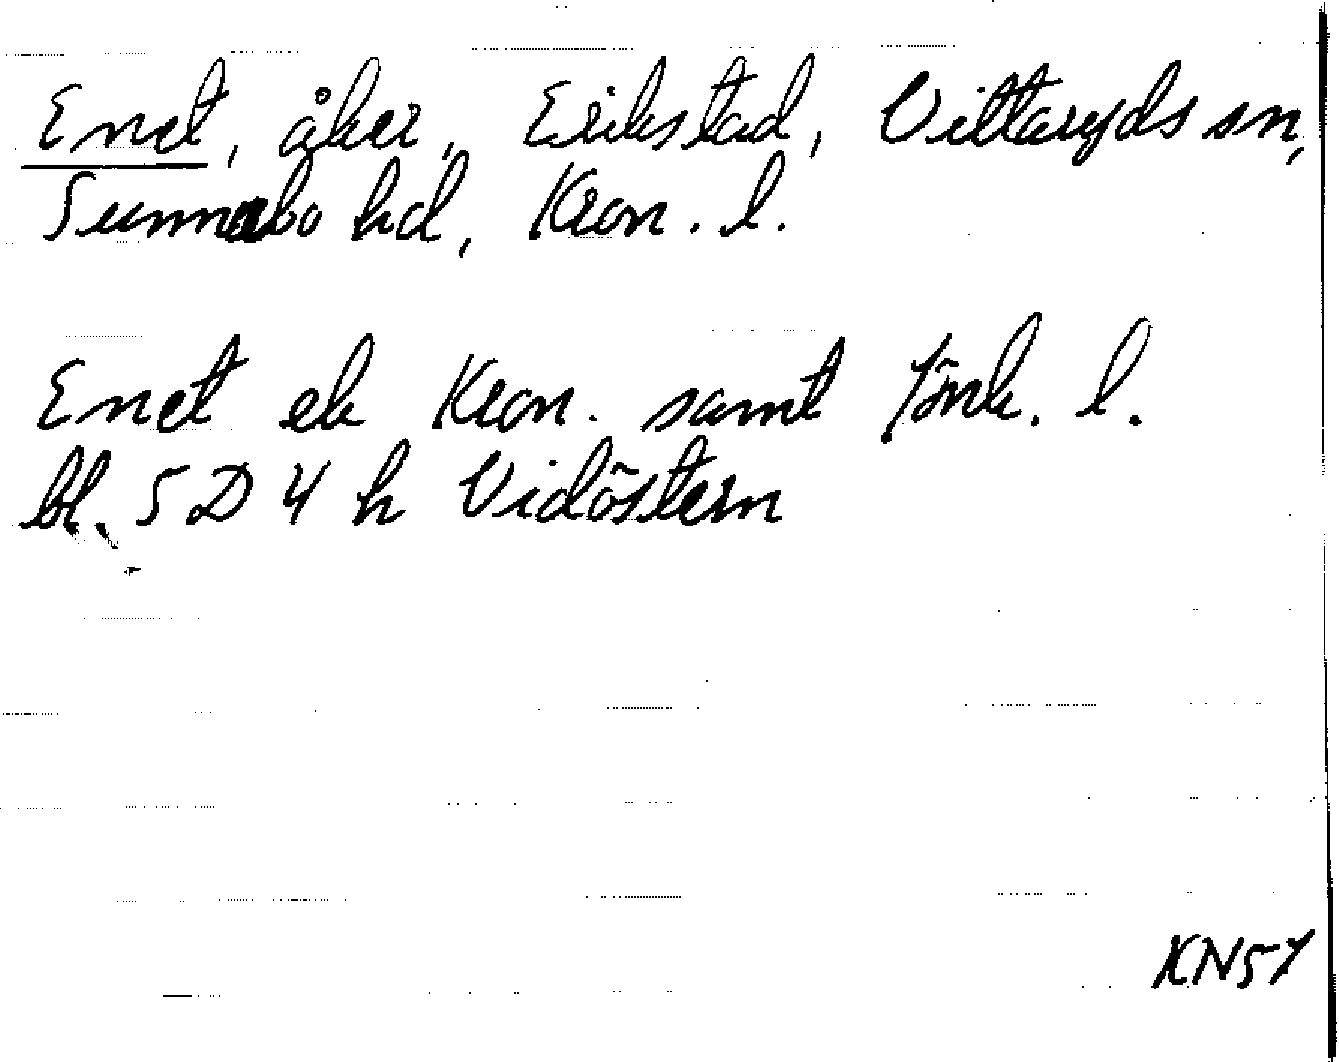 Enet, åker, Erikstad, Vittaryds sn,
Sunnerbo hd, Kron. l.
Enet ek Kron. samt Jönk. l.
bl. 5D 4 h Vidöstern
KN57